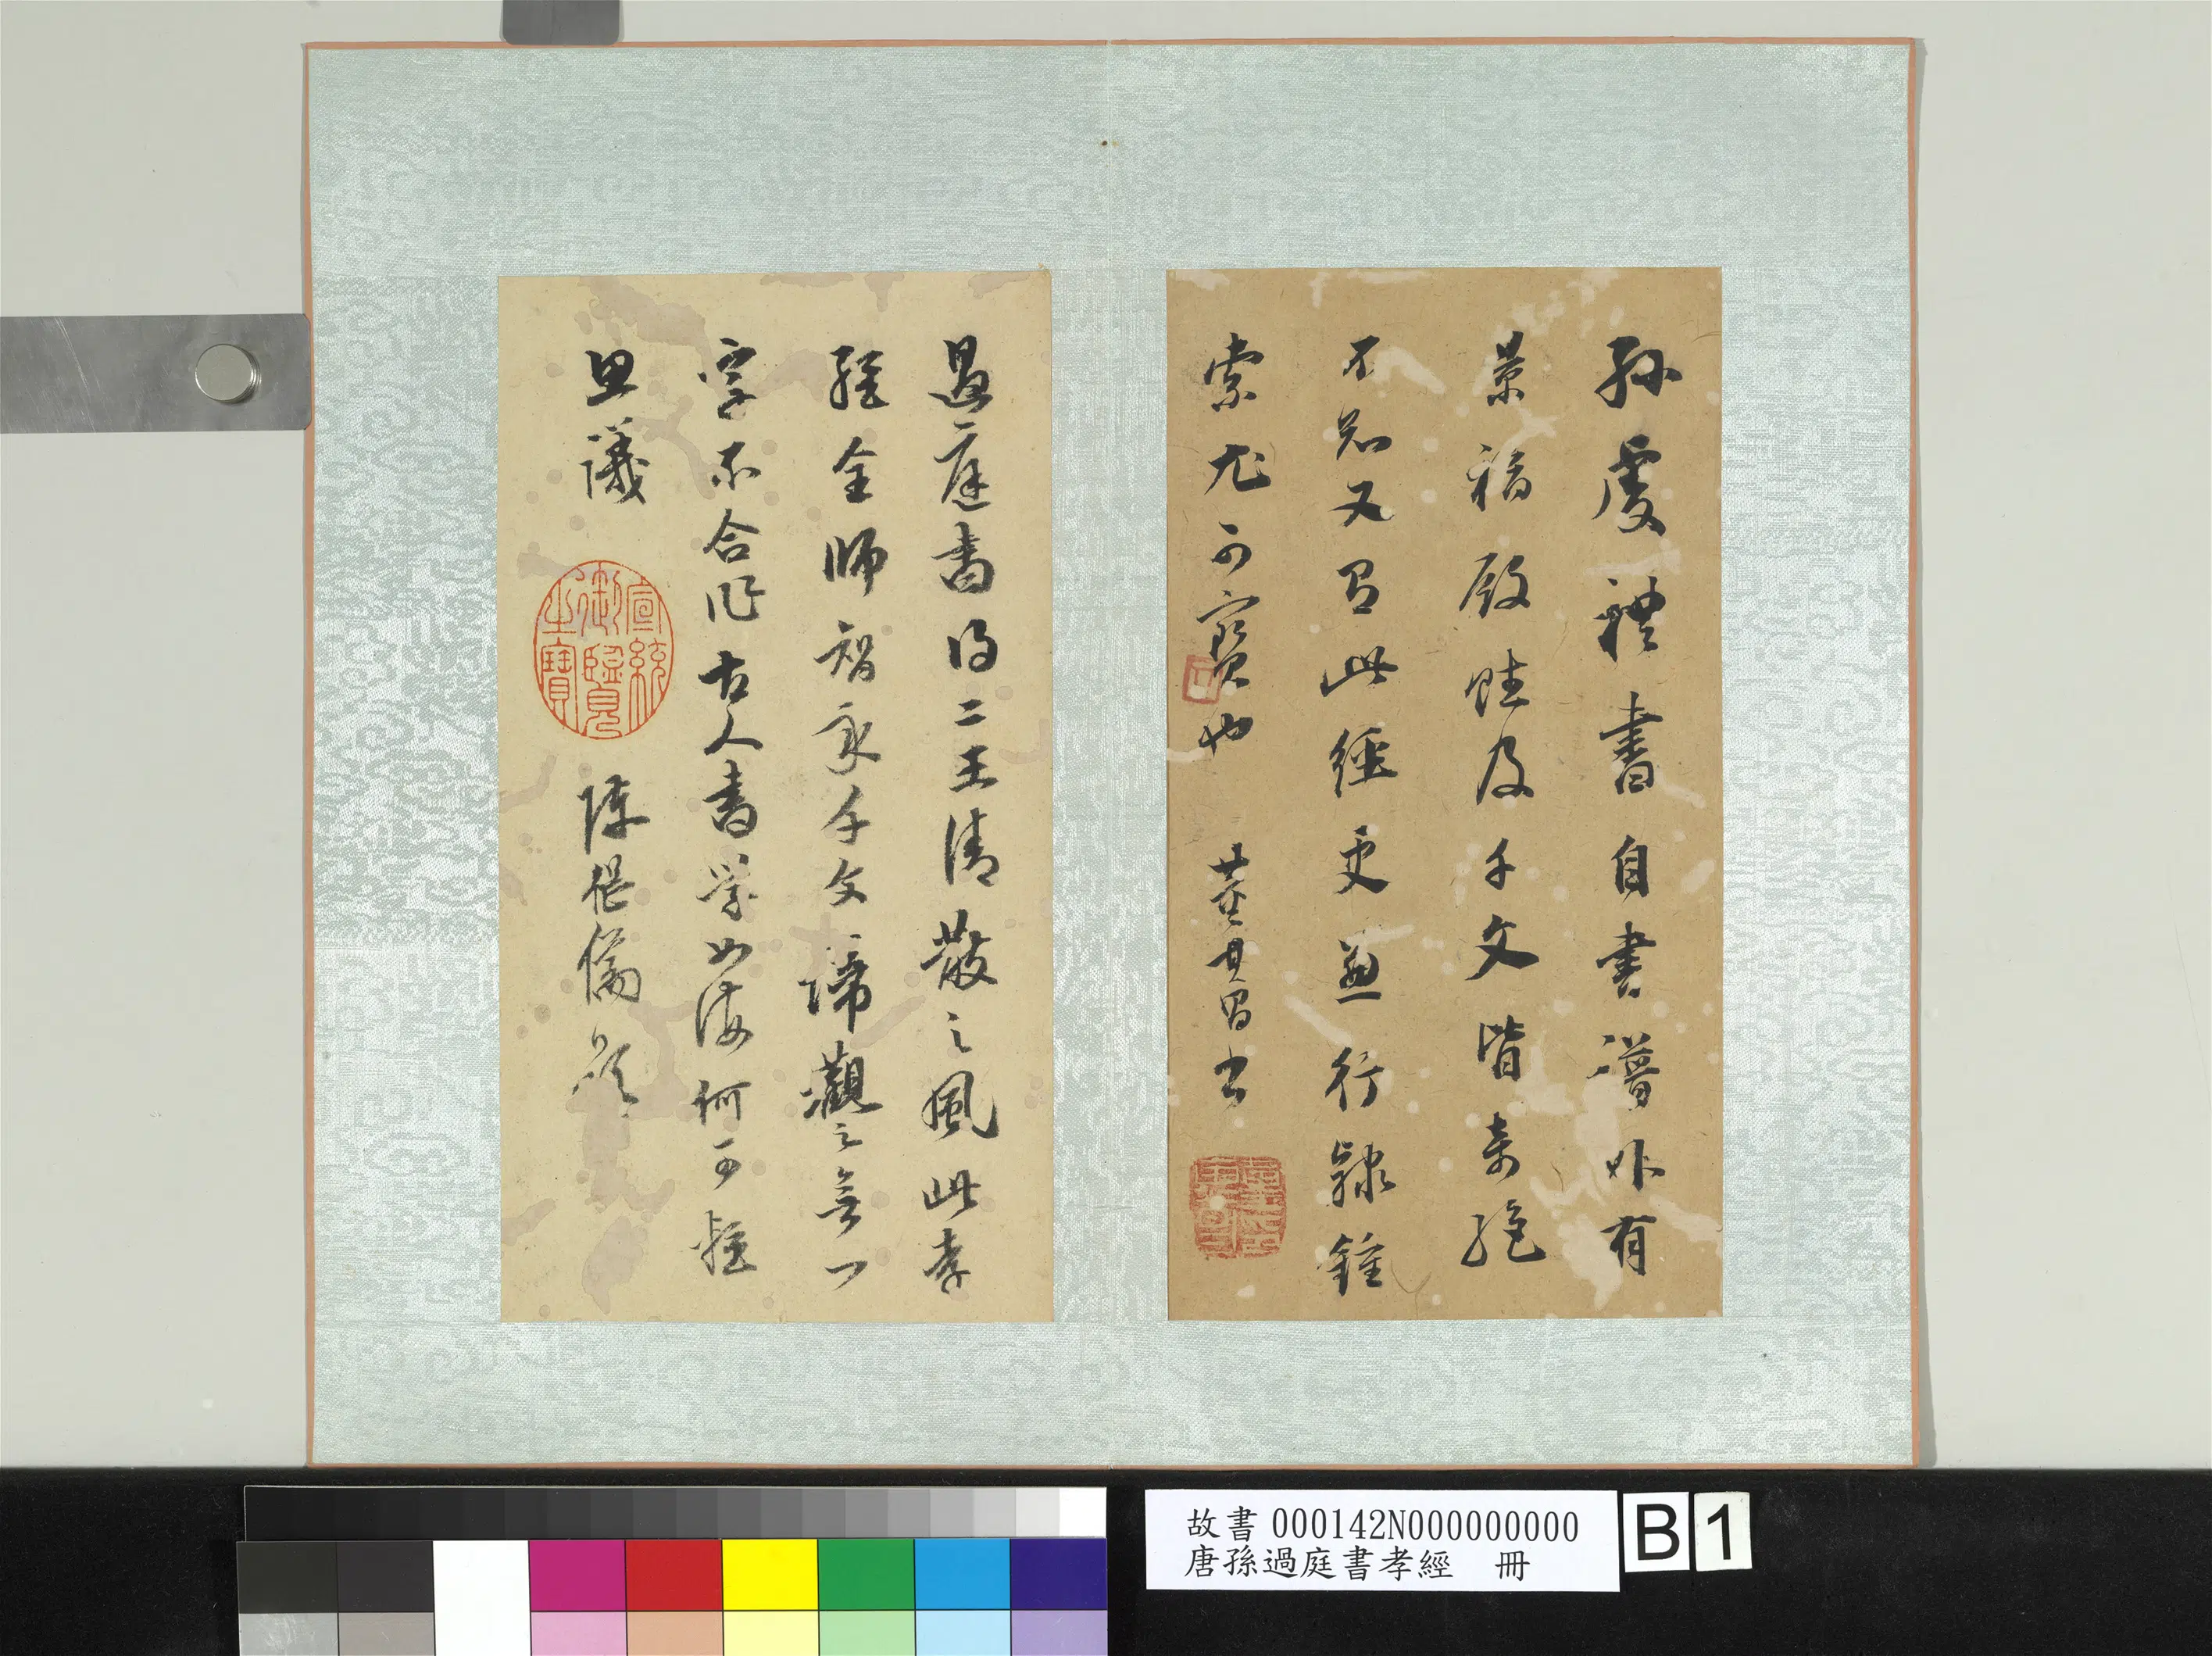 孫虔禮書自書譜外有
景福殿賦及千文皆奇絕
不知又有此經更兼行隸鍾
索尤可寶也 董其昌書
過庭書得二王清散之風此孝
經全師智永千文諦觀之無一
字不合作古人書學如海何可輕
思議 陳繼儒題
宣統御覽之寶
故書 000142N000000000
唐孫過庭書孝經 冊
B 1